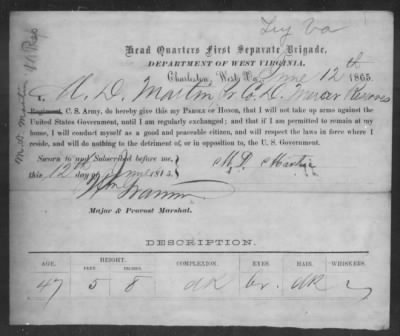 Head Quarters First Separate Brigade,
DEPARTMENT OF WEST VIRGINIA.
Charleston, West Va June 12th 1865.
I, M. D. Martin Co D. Reserves
Regiment, C. S. Army, do hereby give this my PAROLE OF HONOR, that I will not take up arms against the
United States Government, until I am regularly exchanged; and that if I am permitted to remain at my
home, I will conduct myself as a good and peaceable citizen, and will respect the laws in force where I
reside, and will do nothing to the detriment of, or in opposition to, the U. S. Government.
Sworn to and Subscribed before me,
this 12th day of June 1865.
M. D. Martin
Major & Provost Marshal.
DESCRIPTION.
AGE. HEIGHT. COMPLEXION. EYES. HAIR. WHISKERS.
FEET. INCHES.
47 5 8 dk br. dk